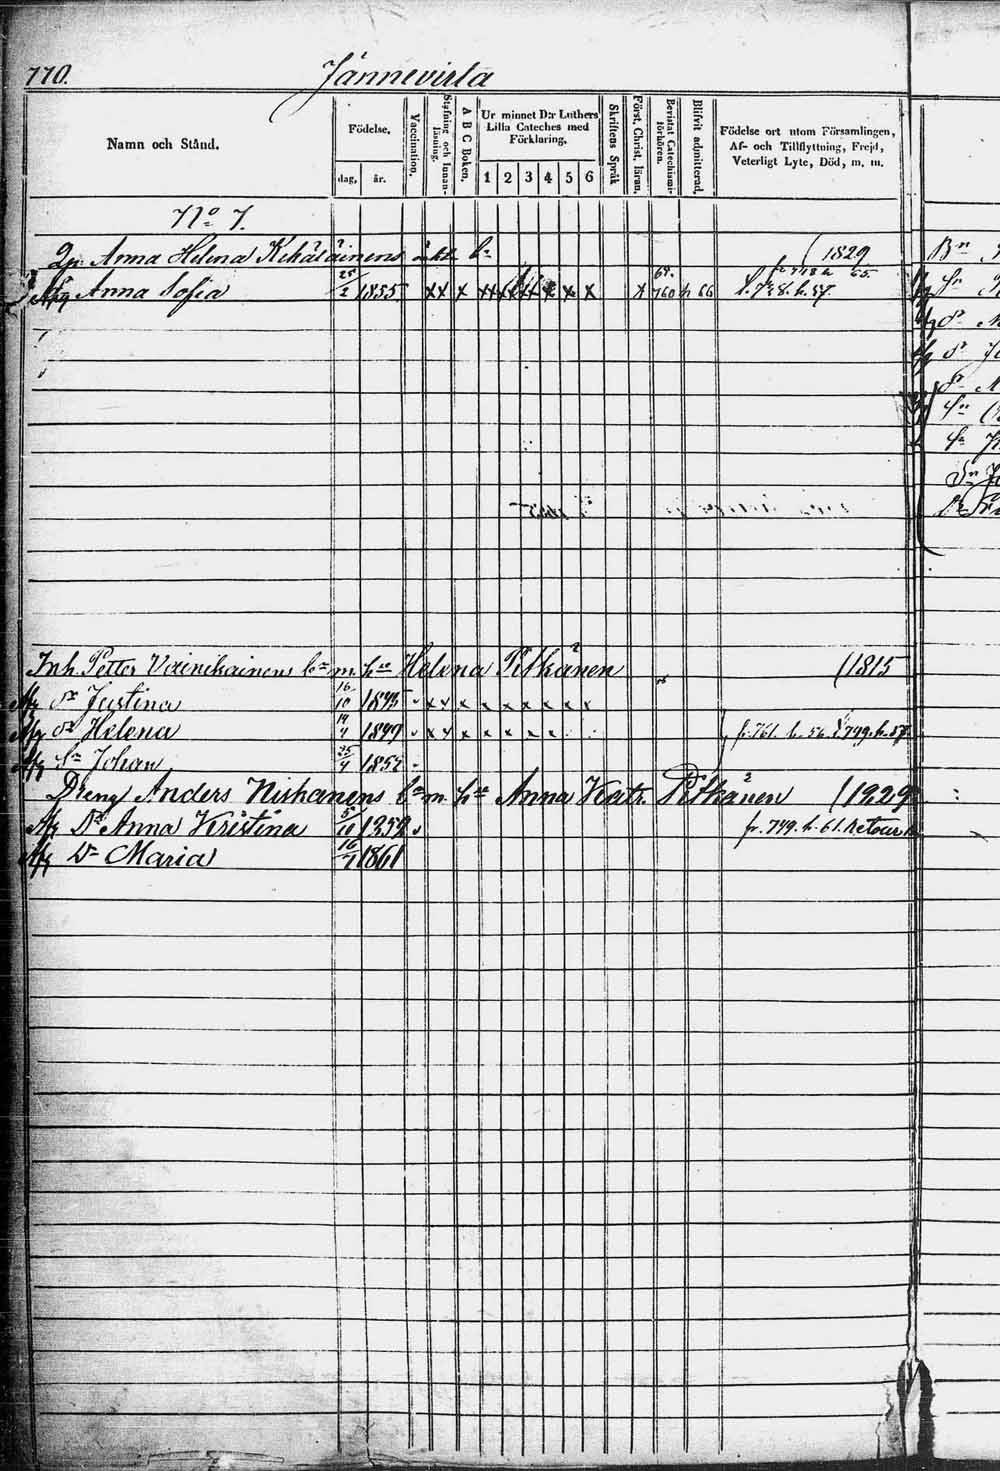 770.
Jännevirta
Namn och Stånd.
Födelse,
dag, år.
Vaccination.
Stafning och Innanläsning.
A B C Boken.
Ur minnet D:r Luthers Lilla Cateches med Förklaring.
1 2 3 4 5 6
Skriftens Språk
Först. Christ. läran.
Bevistat Catechismiförhören.
Blifvit admitterad.
Födelse ort utom Församlingen, Af- och Tillflyttning, Frejd, Veterligt Lyte, Död, m. m.
No 7.
Anna Helena Kehäläinens äkt. bn (1829
Anna Sofia 25/2 1855 x x x x x x x x x x 760 66 65
Inh. Petter Vainikainens bn m. hu Helena Pitkänen (1815
Justina 16/10 1845 x x x x x x x x x
Helena 19/4 1849 x x x x x x x fr. 761. h. 56. 749. h. 57.
Sn Johan 25/4 1852
Dreng Anders Niskanens bn m. hu Anna Katr. Pitkänen (1829
Dr Anna Kristina 5/10 1852 fr. 749. h. 61. Retour
Dr Maria 16/7 1861